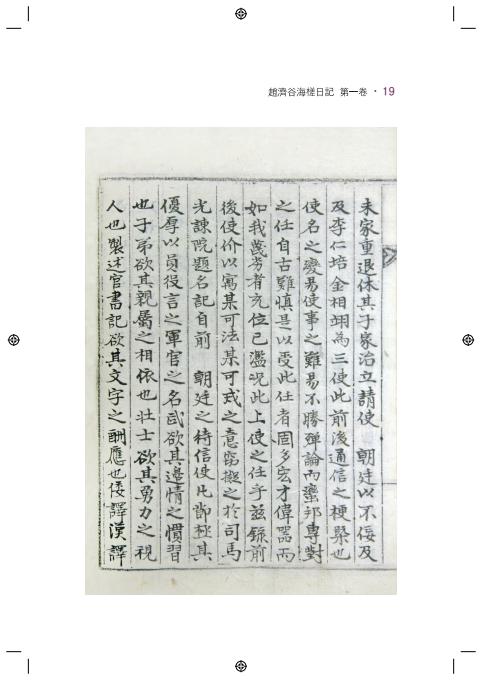 趙濟谷海槎日記 第一卷 · 19
未家重退休其子家治立請使 朝廷以不佞及
及李仁培金相翊為三使此前後通信之梗槩也
使名之變易使事之難易不勝殫論而蠻邦專對
之任自古難慎是以受此任者固多宏才偉器而
如我蔑劣者充位已濫况此上使之任乎玆錄前
後使价以寓某可法某可戒之意竊擬之於司馬
光諫院題名記自前 朝廷之待信使凡節極其
優厚以員役言之軍官之名武欲其邊情之慣習
也子弟欲其親屬之相依也壮士欲其勇力之視
人也製述官書記欲其文字之酬應也倭譯漢譯